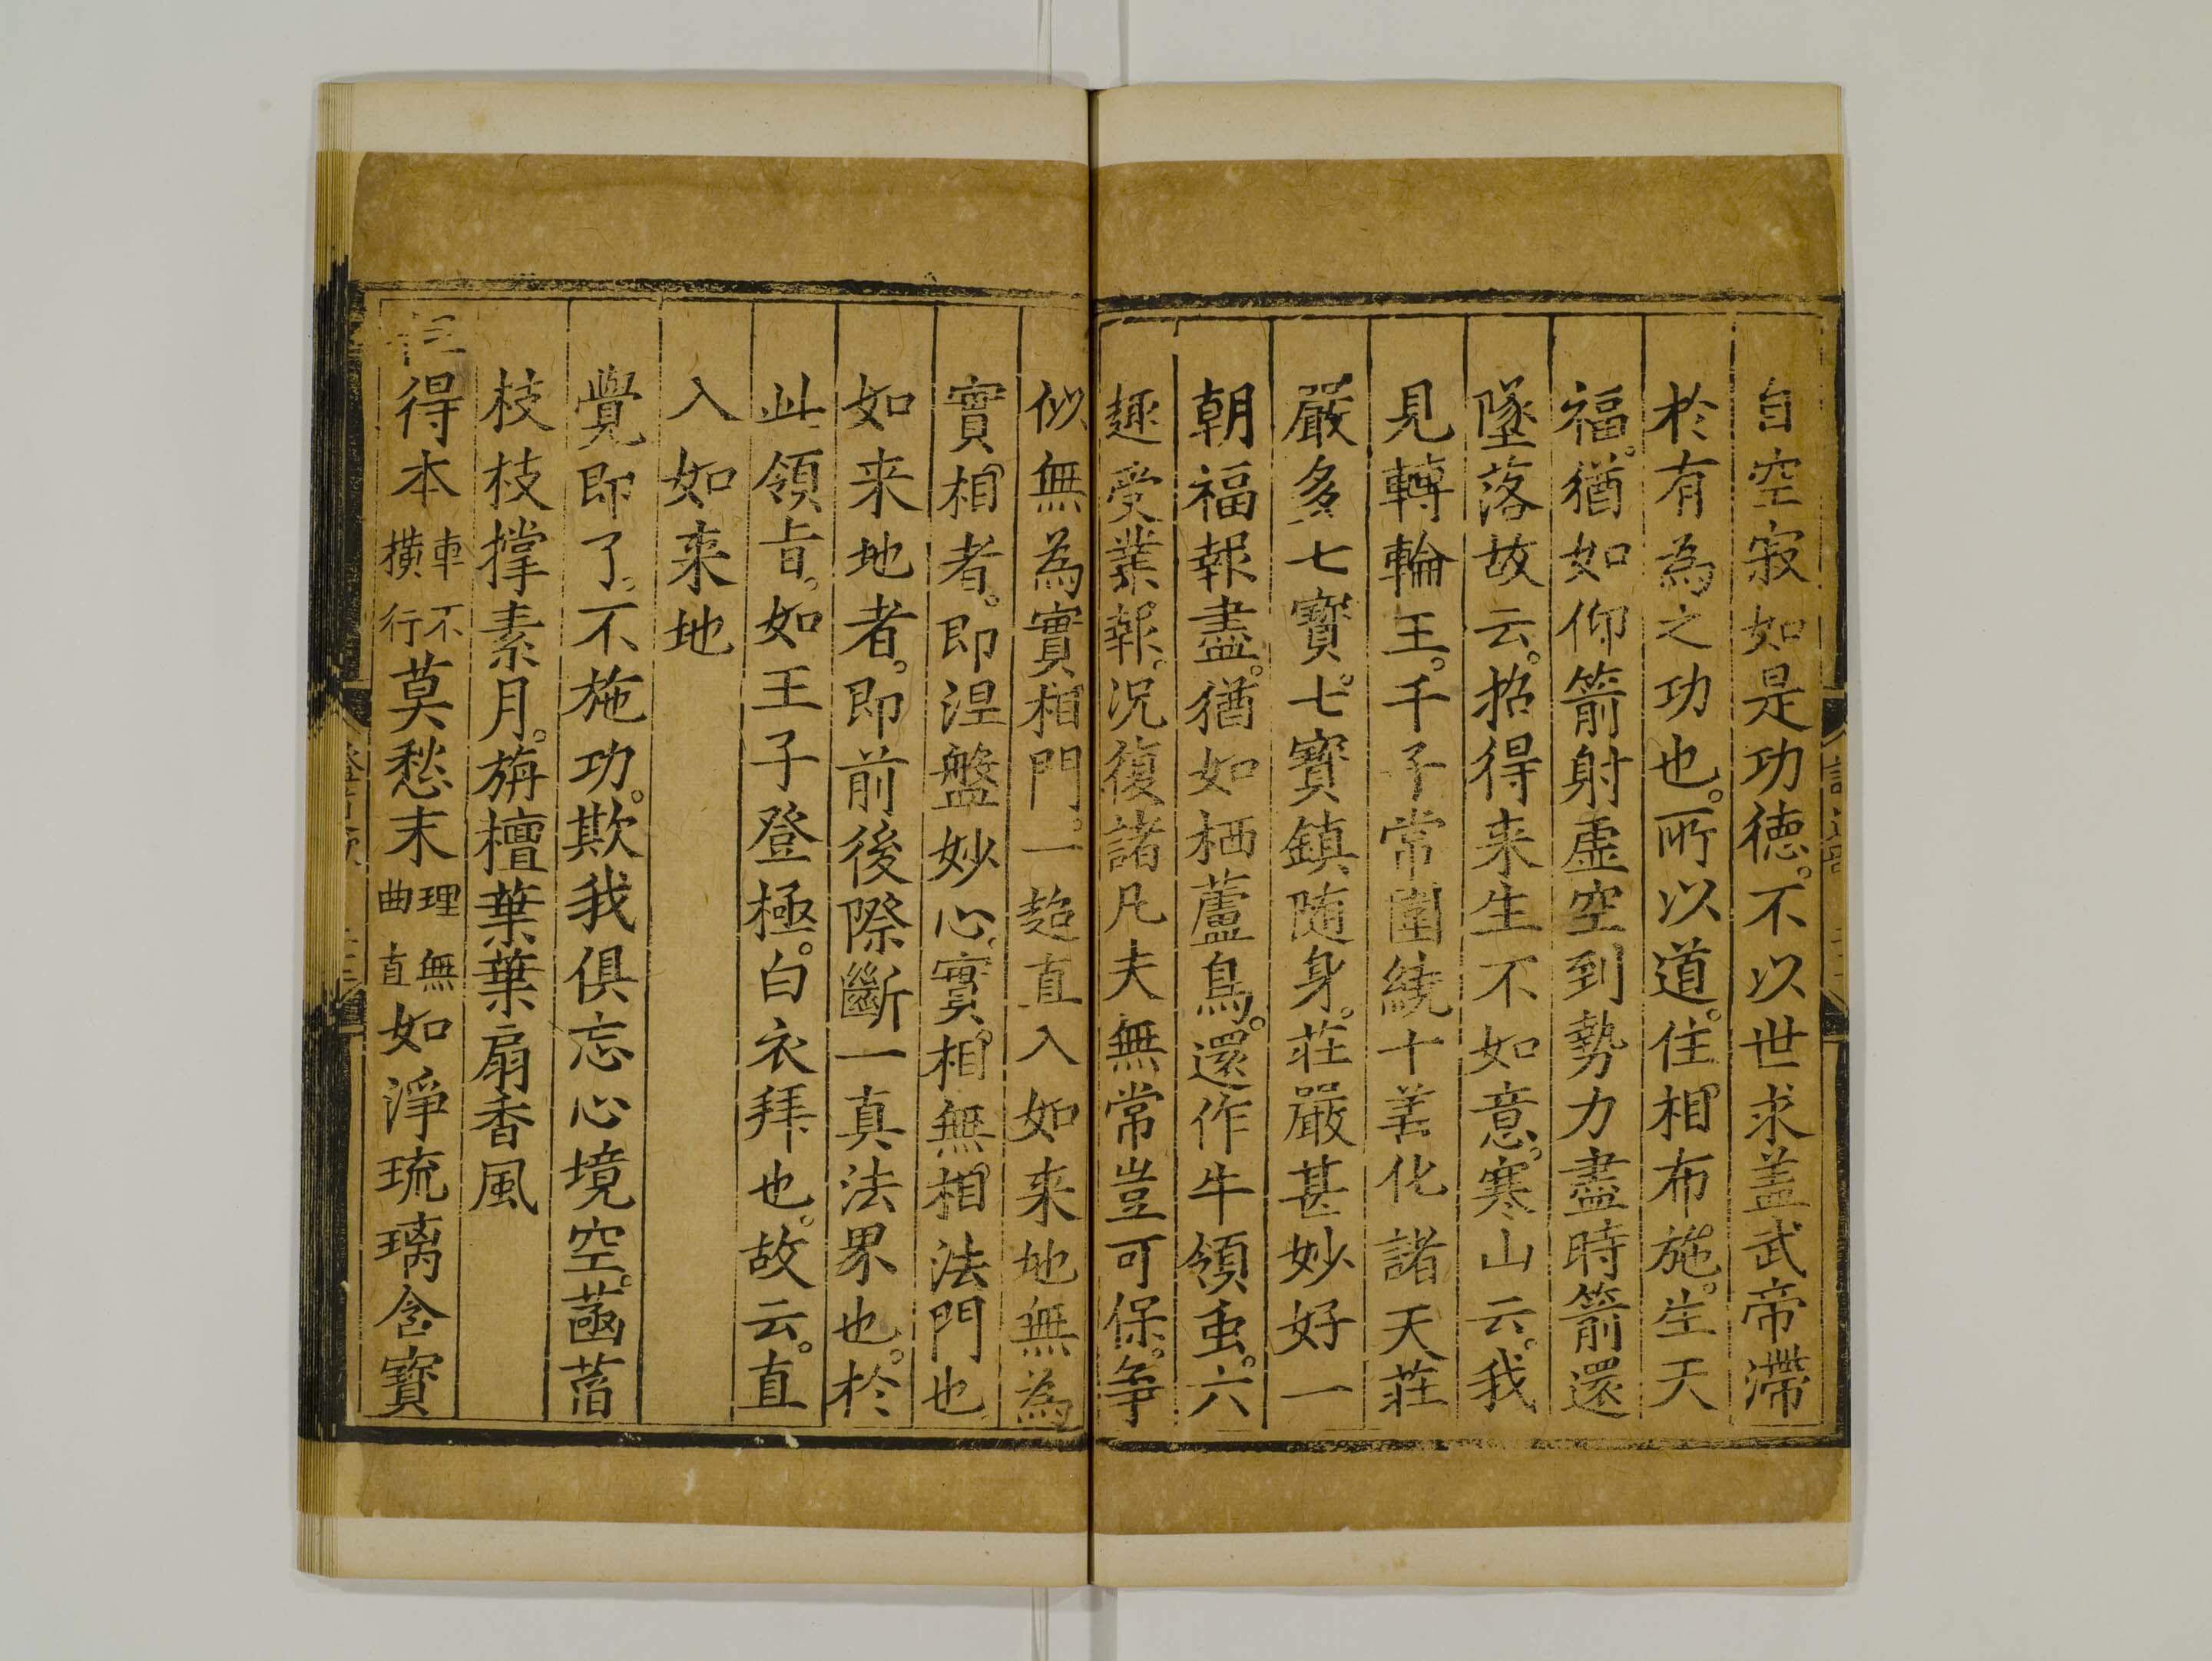 自空寂如是功徳。不以世求盖武帝滯
扵有為之功也。所以道。住相布施。生天
福。猶如仰箭射虛空到勢力盡時箭還
墜落故云。招得来生不如意。寒山云。我
見轉輪王。千子常圍繞十善化諸天莊
嚴多七寳。七寳鎮随身。莊嚴甚妙好一
朝福報盡。猶如栖蘆鳥。還作牛領䖝。六
趣受業報。况復諸凡夫無常豈可保。争
似無為實相門。一超直入如来地無為
實相者。即涅盤妙心。實相無相法門也
如来地者。即前後際斷一真法界也。扵
此領旨。如王子登極。白衣拜也。故云。直
入如来地
覺即了。不施功。欺我俱忘心境空。菡萏
枝枝撑素月。旃檀葉葉扇香風
得本車不橫行莫愁末理無曲直如淨琉璃含寳